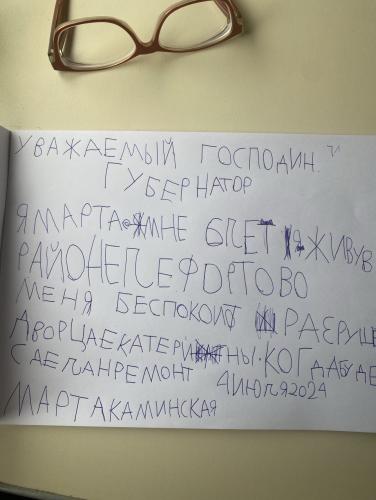 УВАЖАЕМЫЙ ГОСПОДИН
ГУБЕРНАТОР
Я МАРТА МНЕ 6ЛЕТ ЯЖИВУВ
РАЙОНЕЛЕФОРТОВО
МЕНЯ БЕСПОКОИТ РАЗРУШЕ
ДВОРЦАЕКАТЕРИНЫ.КОГДАБУДЕ
СДЕЛАНРЕМОНТ 4ИЮЛЯ2024
МАРТАКАМИНСКАЯ